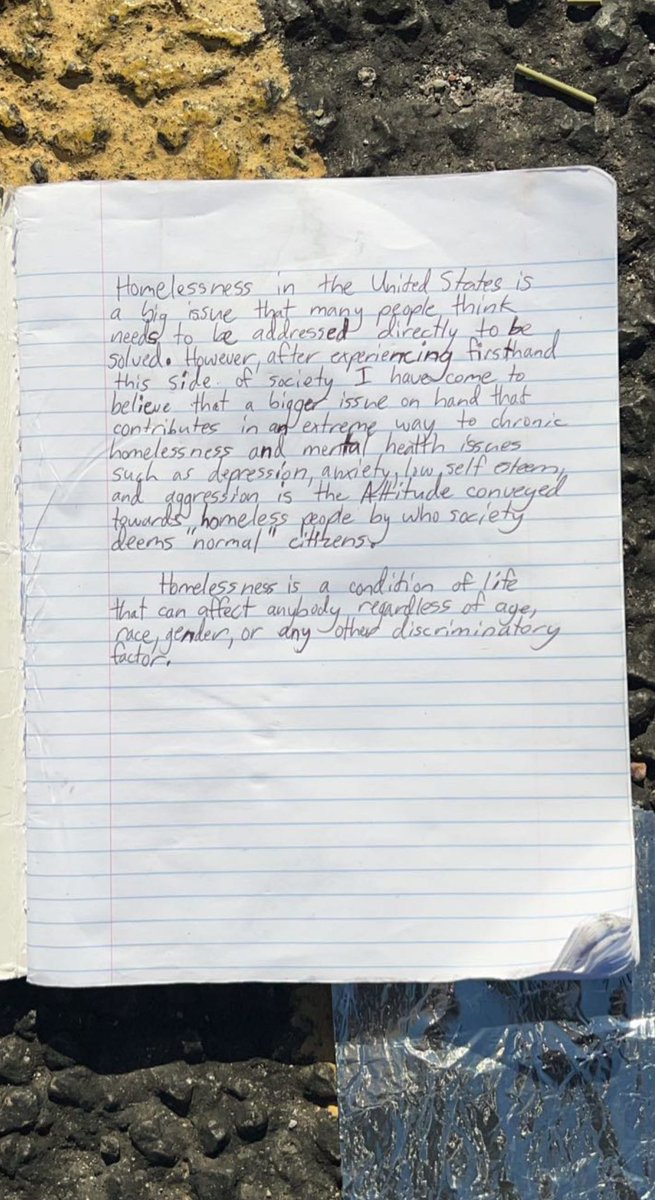 Homelessness in the United States is
a big issue that many people think
needs to be addressed directly to be
solved. However, after experiencing firsthand
this side of society I have come to
believe that a bigger issue on hand that
contributes in an extreme way to chronic
homelessness and mental health issues
such as depression, anxiety, low self esteem,
and aggression is the Attitude conveyed
towards homeless people by who society
deems "normal" citizens.
Homelessness is a condition of life
that can affect anybody regardless of age,
race, gender, or any other discriminatory
factor.